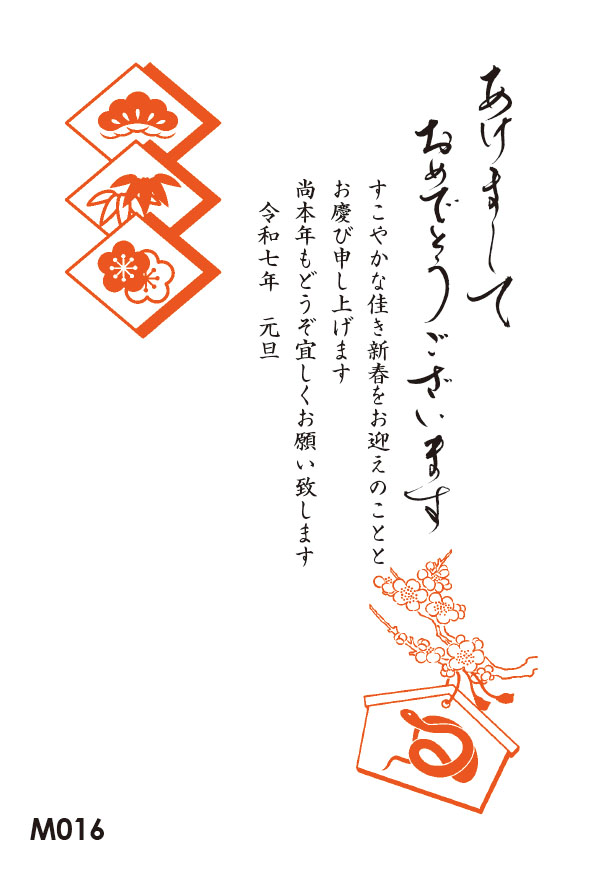 あけまして
おめでとうございます
すこやかな佳き新春をお迎えのことと
お慶び申し上げます
尚本年もどうぞ宜しくお願い致します
令和七年　元旦
M016